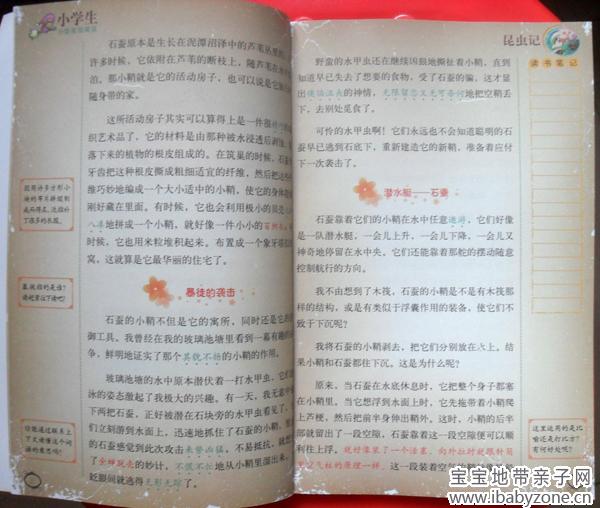 小学生
石蚕原本是生长在泥潭沼泽中的芦苇丛里的
许多时候,它依附在芦苇的断枝上,随芦苇在水中
泊。那小鞘就是它的活动房子,也可以说是它
随身带的家。
这所活动房子其实可以算得上是一件很
织艺术品了,它的材料是由那种被水浸透后剥
落下来的植物的根皮组成的。在筑巢的时候,石蚕
牙齿把这种根皮撕成粗细适宜的纤维,然后把这
维巧妙地编成一个大小适中的小鞘,使它的身体
刚好藏在里面。有时候,它也会利用极小的贝
八凑地拼成一个小鞘,就好像一件小小的百
时候,它也用米粒堆积起来。布置成一个象牙塔
窝,这就算是它最华丽的住宅了。
暴徒的袭击
石蚕的小鞘不但是它的寓所,同时还是它的
御工具。我曾经在我的玻璃池塘里看到一幕有趣的
争,鲜明地证实了那个其貌不扬的小鞘的作用。
玻璃池塘的水中原本潜伏着一打水甲虫,它们
泳的姿态激起了我极大的兴趣。有一天,我无意中
下两把石蚕,正好被潜在石块旁的水甲虫看见了,
们立刻游到水面上,迅速地抓住了石蚕的小鞘,里
的石蚕感觉到此次攻击来势凶猛,不易抵抗,就想
了金蝉脱壳的妙计,不慌不忙地从小鞘里溜出来,
眨眼间就逃得无影无踪了。
昆虫记
读书笔记
野蛮的水甲虫还在继续凶狠地撕扯着小鞘,直到
知道早已失去了想要的食物,受了石蚕的骗,这才显
出懊恼沮丧的神情,无限留恋又无可奈何地把空鞘丢
下,去别处觅食了。
可怜的水甲虫啊!它们永远也不会知道聪明的石
蚕早已逃到石底下,重新建造它的新鞘,准备着应付
下一次袭击了。
潜水艇——石蚕
石蚕靠着它们的小鞘在水中任意遨游,它们好像
是一队潜水艇,一会儿上升,一会儿下降,一会儿又
神奇地停留在水中央。它们还能靠着那舵的摆动随意
控制航行的方向。
我不由想到了木筏,石蚕的小鞘是不是有木筏那
样的结构,或是有类似于浮囊作用的装备,使它们不
致于下沉呢?
我将石蚕的小鞘剥去,把它们分别放在水上。结
果小鞘和石蚕都往下沉。这是为什么呢?
原来,当石蚕在水底休息时,它把整个身子都塞
在小鞘里。当它想浮到水面上时,它先拖带着小鞘爬
上芦梗,然后把前半身伸出鞘外。这时,小鞘的后半
部就留出了一段空隙,石蚕靠着这一段空隙便可以顺
利往上浮。就好像装了一个活塞,向外拉时就跟针筒
里空气柱的原理一样。这一段装着空
这里运用的是比
喻还是打比方?
有何好处呢?
宝宝地带亲子网
www.ibabyzone.cn